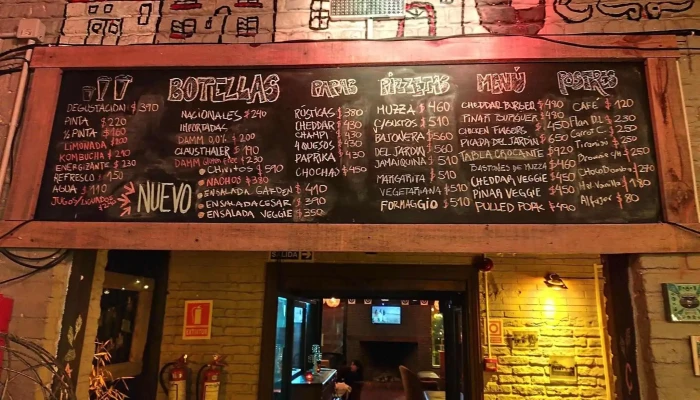 BOTELLAS
PAPAS
PIZZETAS
MENÚ
POSTRES
DEGUSTACION $390
PINTA $220
½ PINTA $160
LIMONADA $200
KOMBUCHA $240
ENERGIZANTE $230
REFRESCO $150
AGUA $110
NACIONALES $240
IMPORTADAS
DAMM 0.0% $200
CLAUSTHALER $190
DAMM Gluten free $230
NUEVO
CHIVITOS $590
NACHOS $380
ENSALADA GARDEN $410
ENSALADA CESAR $390
ENSALADA VEGGIE $350
RÚSTICAS $380
CHEDDAR $430
CHAMPI $430
4 QUESOS $430
PAPRIKA $430
CHOCHAO $450
MUZZA $460
GUSTOS $510
BALONERA $560
DEL JARDIN $560
JAMAIQUINA $510
MARGARITA $510
VEGETARIANA $510
FORMAGGIO $510
CHEDDAR BURGER $480
PINAR BURGUER $480
CHICKEN FINGERS $450
PICADA DEL JARDÍN $650
TABLA CROCANTE $920
BASTONES DE MUZZA $460
CHEDDAR VEGGIE $450
PINAR VEGGIE $450
PULLED PORK $490
CAFÉ $120
Flan D.L $230
Carrot C. $250
Tiramisú $250
Brownie +H $250
Choco Bomba $270
Hel. Vainilla $180
Alfajor $80
SALIDA